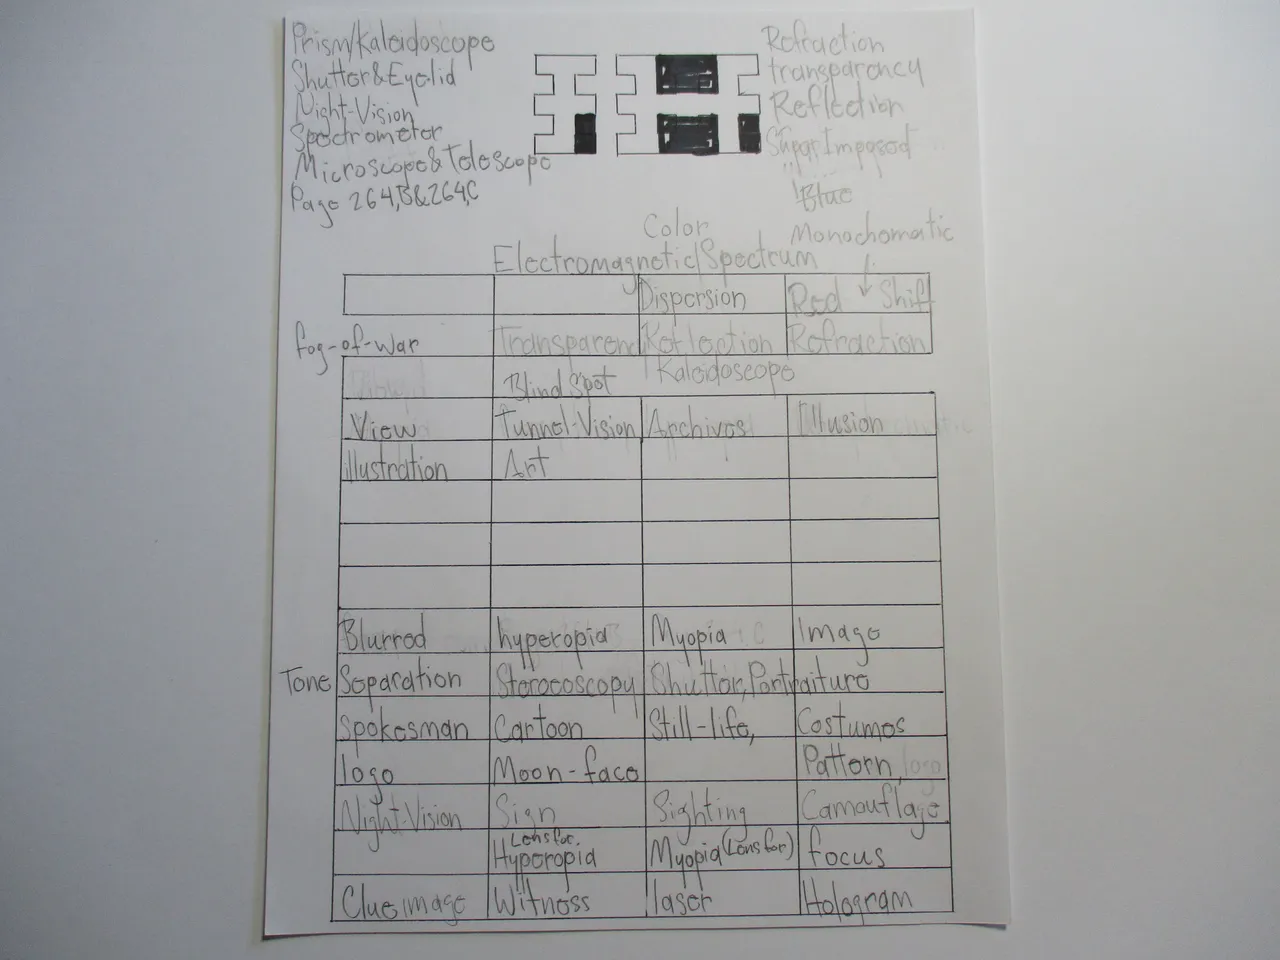 Prism/Kaleidoscope
Shutter&Eyelid
Night-Vision
Spectrometer
Microscope&Telescope
Page 264,B&264,C
Refraction
transparency
Reflection
Super Imposed
Blue
Monochomatic
Color
Electromagnetic/Spectrum
Dispersion Red Shift
Fog-of-war Transparenc Reflection Refraction
Blind Spot Kaleidoscope
View Tunnel-Vision Archives Illusion
illustration Art
Blurred hyperopia Myopia Image
Tone Separation Stereoscopy Shutter, Portraiture
Spokesman Cartoon Still-life, Costumes
logo Moon-face Pattern, logo
Night-Vision Sign Sighting Camouflage
Lens for.
Hyperopia Myopia (Lens for) focus
Clue image Witness laser Hologram